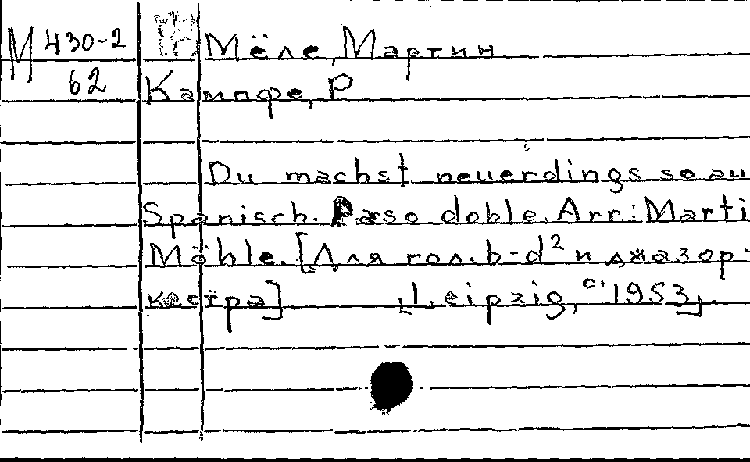 М 430-2 Мёле, Мартин
62 Кампфе, Р
Du machst neuerdings so au
Spanisch. Paso doble. Arr: Marti
Möhle. [Для гол. b-d² и джазор-
кестра] [Leipzig, c. 1953].